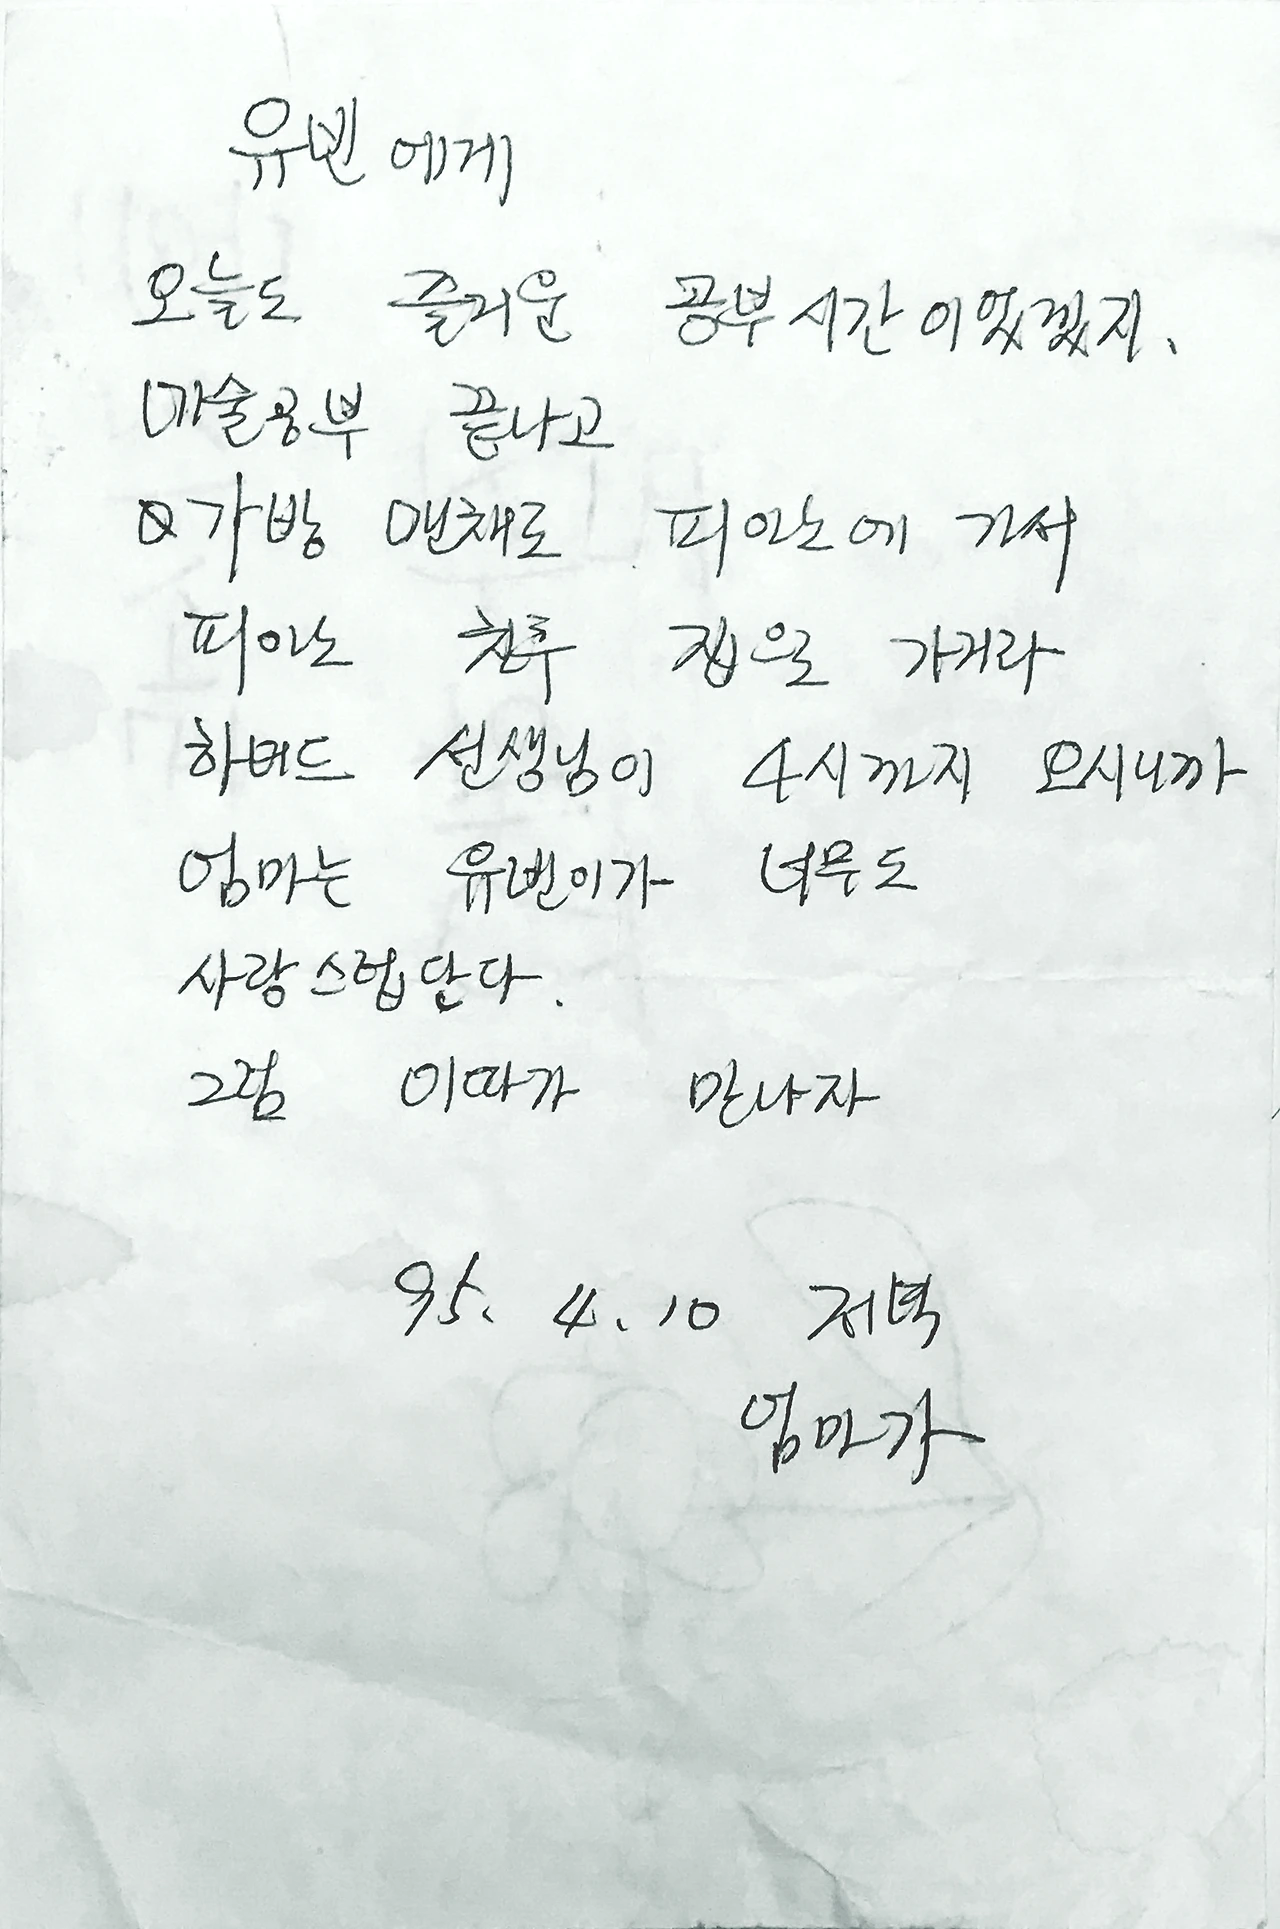 유빈에게
오늘도 즐거운 공부시간이었겠지.
미술공부 끝나고
가방 맨채로 피아노에 가서
피아노 친후 집으로 가거라
하버드 선생님이 4시까지 오시니까
엄마는 유빈이가 너무도
사랑스럽단다.
그럼 이따가 만나자
95. 4. 10 저녁
엄마가